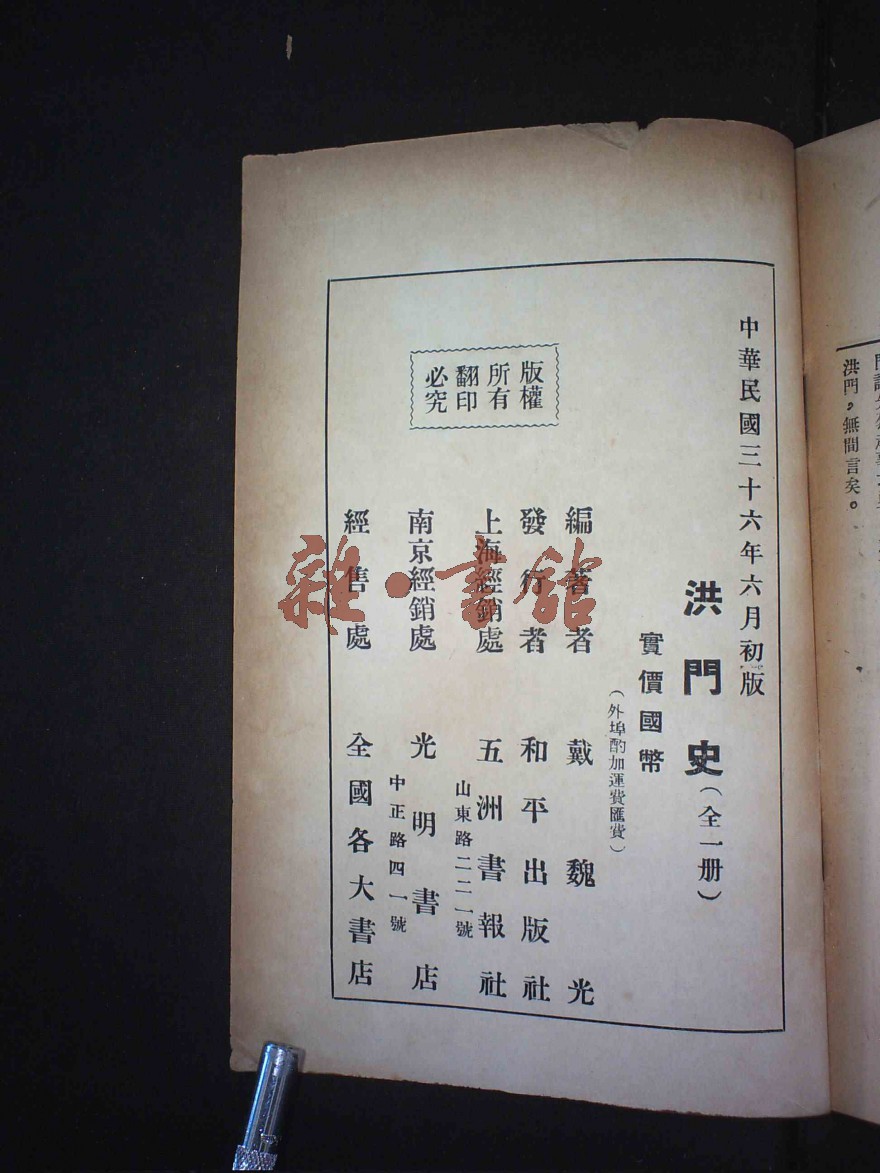 洪門，無間言矣。
中華民國三十六年六月初版
洪門史（全一册）
實價國幣
（外埠酌加運費匯費）
編著者 戴魏光
發行者 和平出版社
上海經銷處 五洲書報社
山東路二二一號
南京經銷處 光明書店
中正路四一號
經售處 全國各大書店
版權
所有
翻印
必究
雜·書館